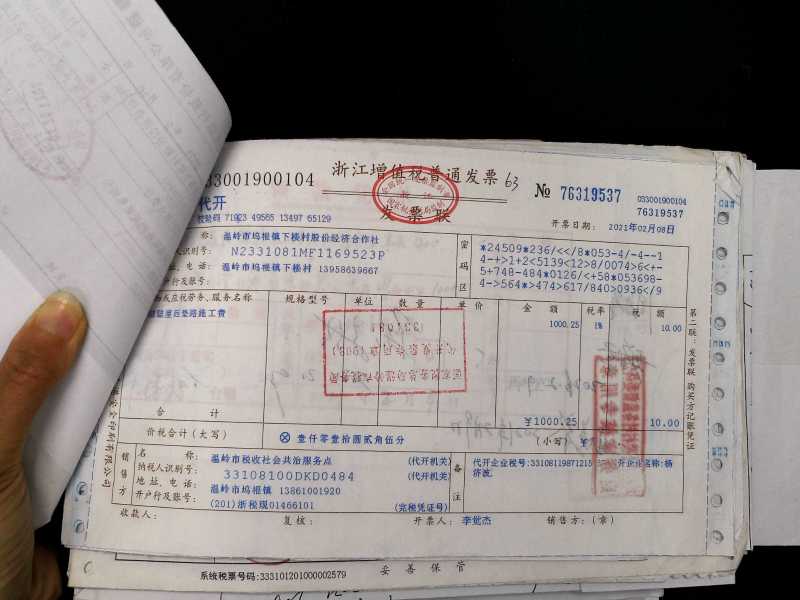 33001900104
浙江增值税普通发票 63
发票联
№ 76319537
033001900104
76319537
代开
校验码 71923 49565 13497 65129
开票日期: 2021年02月08日
称: 温岭市坞根镇下楼村股份经济合作社
人识别号: N2331081MF1169523P
址、电话: 温岭市坞根镇下楼村 13958639667
户行及账号:
密码区
*24509*236/<</8*053-4/-4--1
4-+>1+2<5139<12>8/0074>6<+-
5+748-484*0126/<+58*053698-
4->564*>474>617/840>0936</9
物或应税劳务、服务名称 规格型号 单位 数量 单价 金额 税率 税额
屋后垫路施工费 1000.25 1% 10.00
合计 ¥1000.25 10.00
价税合计(大写) ⊗ 壹仟零壹拾圆贰角伍分 (小写) ¥
销售方
名称: 温岭市税收社会共治服务点 (代开机关)
纳税人识别号: 33108100DKD0484 (代开机关)
地址、电话: 温岭市坞根镇 13861001920
开户行及账号: (201)浙税现01466101 (完税凭证号)
备注
代开企业税号:33108119871215 开企业名称:杨
济波
收款人: 复核: 开票人: 李觉杰 销售方:(章)
第二联:发票联 购买方记账凭证
系统税票号码:333101201000002579 妥善保管